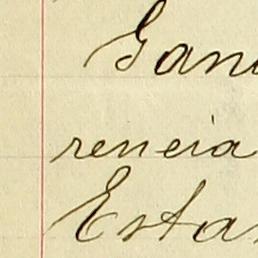 Gan
rencia
Esta